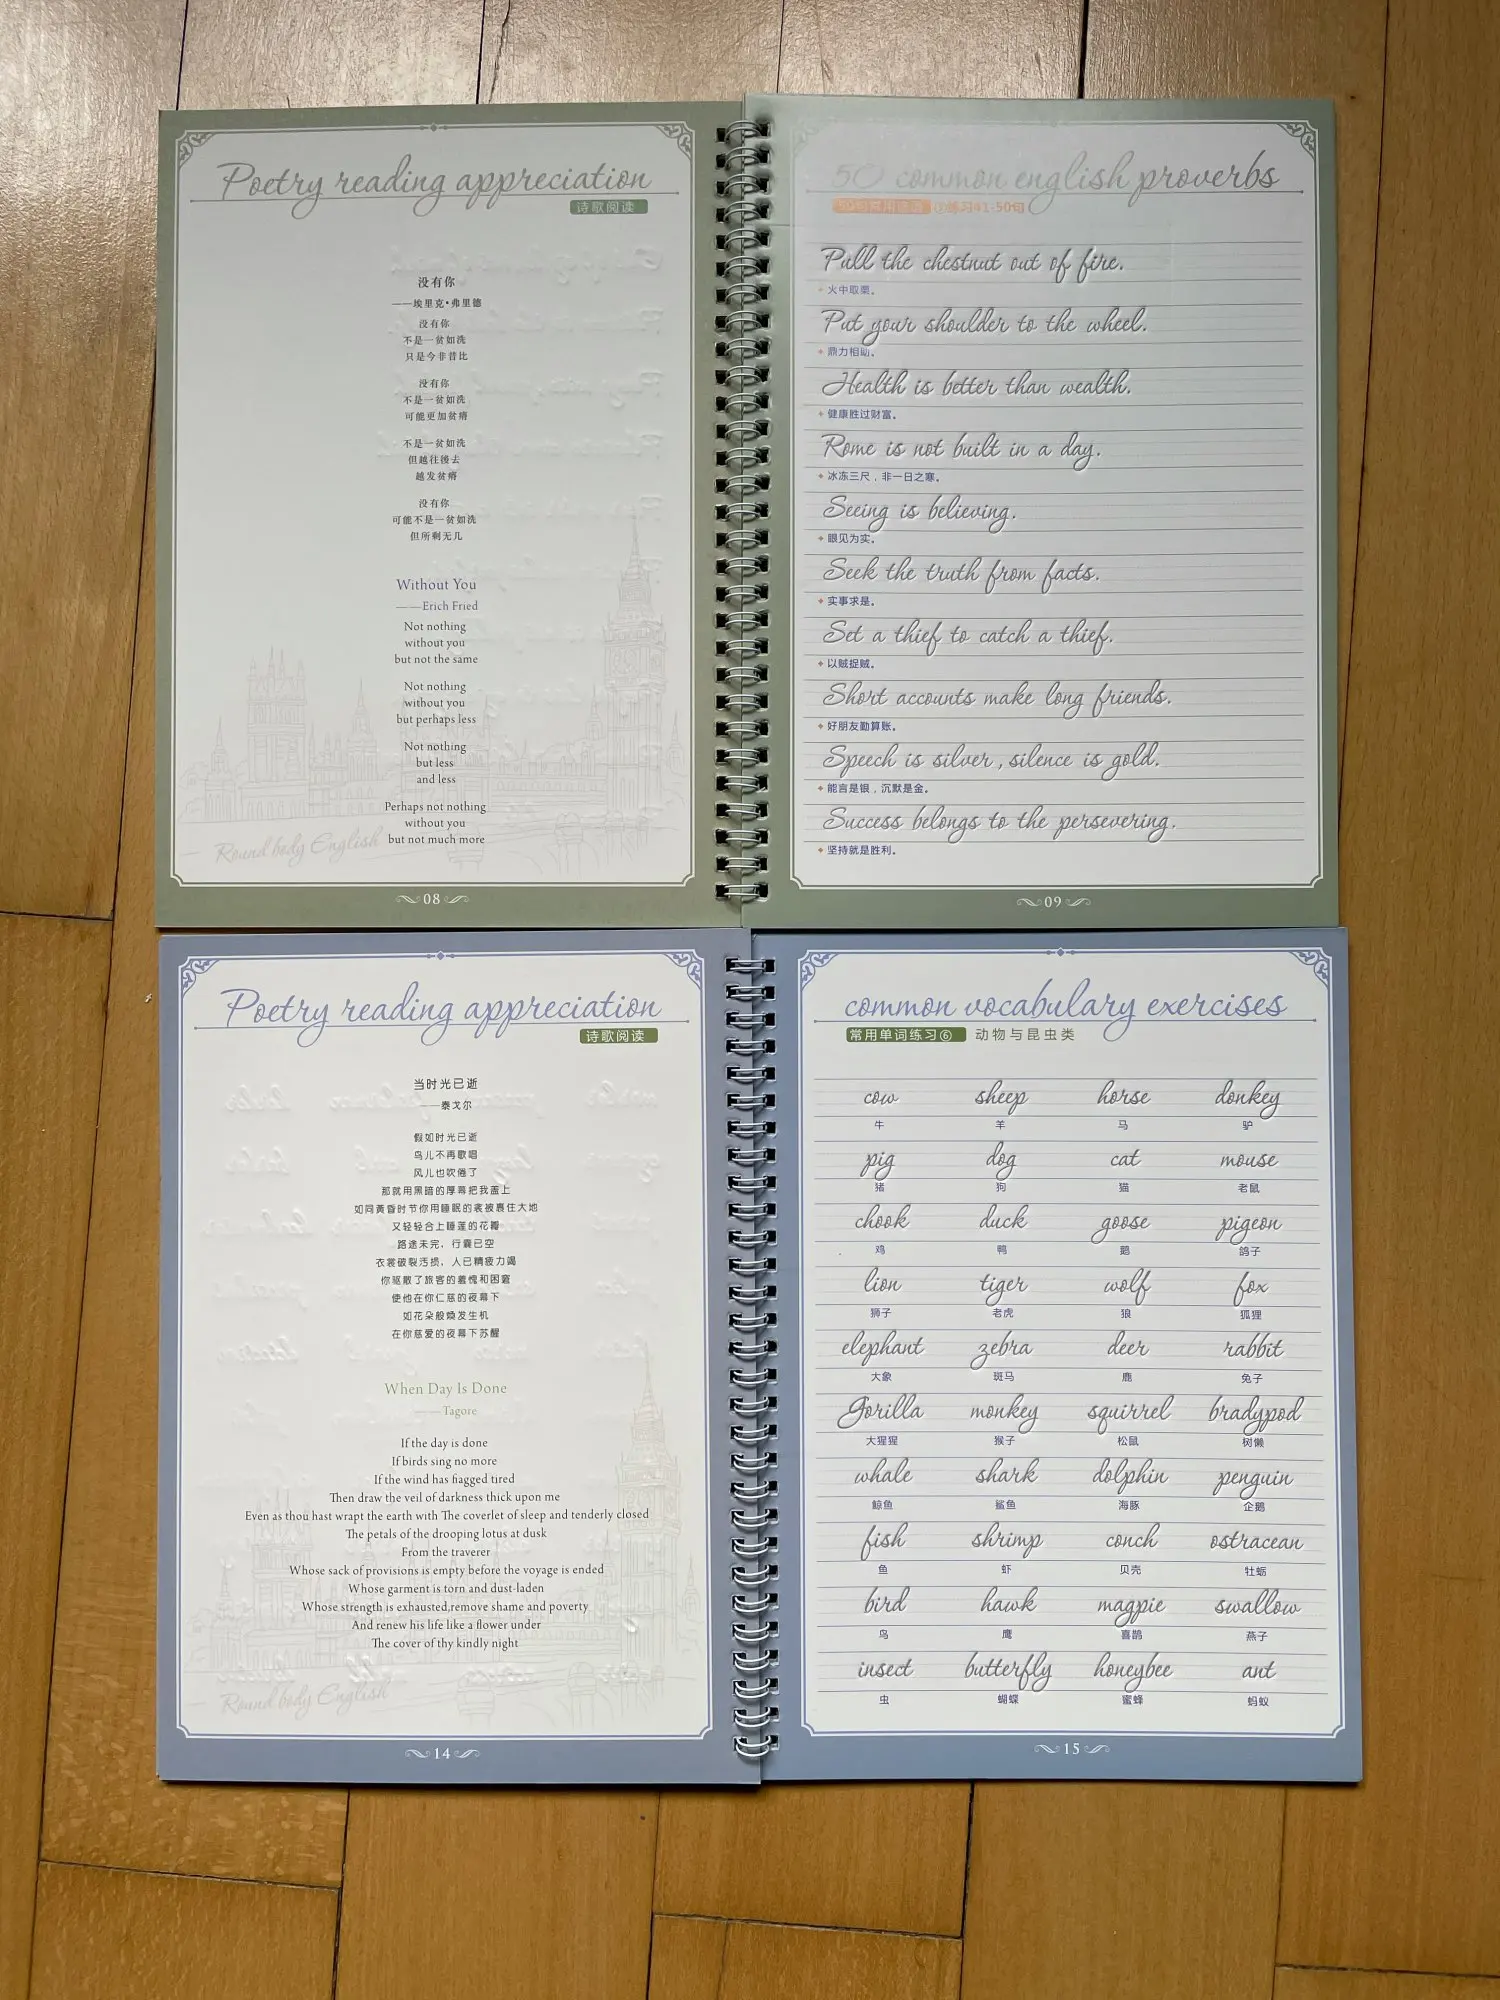 Poetry reading appreciation
诗歌阅读
没有你
——埃里克•弗里德
没有你
不是一贫如洗
只是今非昔比
没有你
不是一贫如洗
可能更加贫瘠
不是一贫如洗
但越往后去
越发贫瘠
没有你
可能不是一贫如洗
但所剩无几
Without You
——Erich Fried
Not nothing
without you
but not the same
Not nothing
without you
but perhaps less
Not nothing
but less
and less
Perhaps not nothing
without you
but not much more
Round body English
08
50 common english proverbs
练习41-50句
Pull the chestnut out of fire.
火中取栗。
Put your shoulder to the wheel.
鼎力相助。
Health is better than wealth.
健康胜过财富。
Rome is not built in a day.
冰冻三尺，非一日之寒。
Seeing is believing.
眼见为实。
Seek the truth from facts.
实事求是。
Set a thief to catch a thief.
以贼捉贼。
Short accounts make long friends.
好朋友勤算账。
Speech is silver , silence is gold.
能言是银，沉默是金。
Success belongs to the persevering.
坚持就是胜利。
09
Poetry reading appreciation
诗歌阅读
当时光已逝
——泰戈尔
假如时光已逝
鸟儿不再歌唱
风儿也吹倦了
那就用黑暗的厚幕把我盖上
如同黄昏时节你用睡眠的衾被裹住大地
又轻轻合上睡莲的花瓣
路途未完，行囊已空
衣裳破裂污损，人已精疲力竭
你驱散了旅客的羞愧和困窘
使他在你仁慈的夜幕下
如花朵般焕发生机
在你慈爱的夜幕下苏醒
When Day Is Done
——Tagore
If the day is done
If birds sing no more
If the wind has fiagged tired
Then draw the veil of darkness thick upon me
Even as thou hast wrapt the earth with The coverlet of sleep and tenderly closed
The petals of the drooping lotus at dusk
From the traverer
Whose sack of provisions is empty before the voyage is ended
Whose garment is torn and dust-laden
Whose strength is exhausted,remove shame and poverty
And renew his life like a flower under
The cover of thy kindly night
Round body English
14
common vocabulary exercises
常用单词练习⑥ 动物与昆虫类
cow sheep horse donkey
牛 羊 马 驴
pig dog cat mouse
猪 狗 猫 老鼠
chook duck goose pigeon
鸡 鸭 鹅 鸽子
lion tiger wolf fox
狮子 老虎 狼 狐狸
elephant zebra deer rabbit
大象 斑马 鹿 兔子
Gorilla monkey squirrel bradypod
大猩猩 猴子 松鼠 树懒
whale shark dolphin penguin
鲸鱼 鲨鱼 海豚 企鹅
fish shrimp conch ostracean
鱼 虾 贝壳 牡蛎
bird hawk magpie swallow
鸟 鹰 喜鹊 燕子
insect butterfly honeybee ant
虫 蝴蝶 蜜蜂 蚂蚁
15